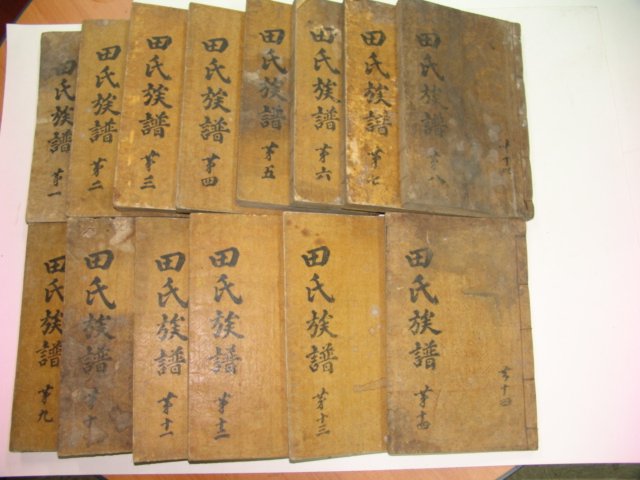 田氏族譜 第一
田氏族譜 第二
田氏族譜 第三
田氏族譜 第四
田氏族譜 第五
田氏族譜 第六
田氏族譜 第七
田氏族譜 第八
田氏族譜 第九
田氏族譜 第十
田氏族譜 第十一
田氏族譜 第十二
田氏族譜 第十三
田氏族譜 第十四
共十四